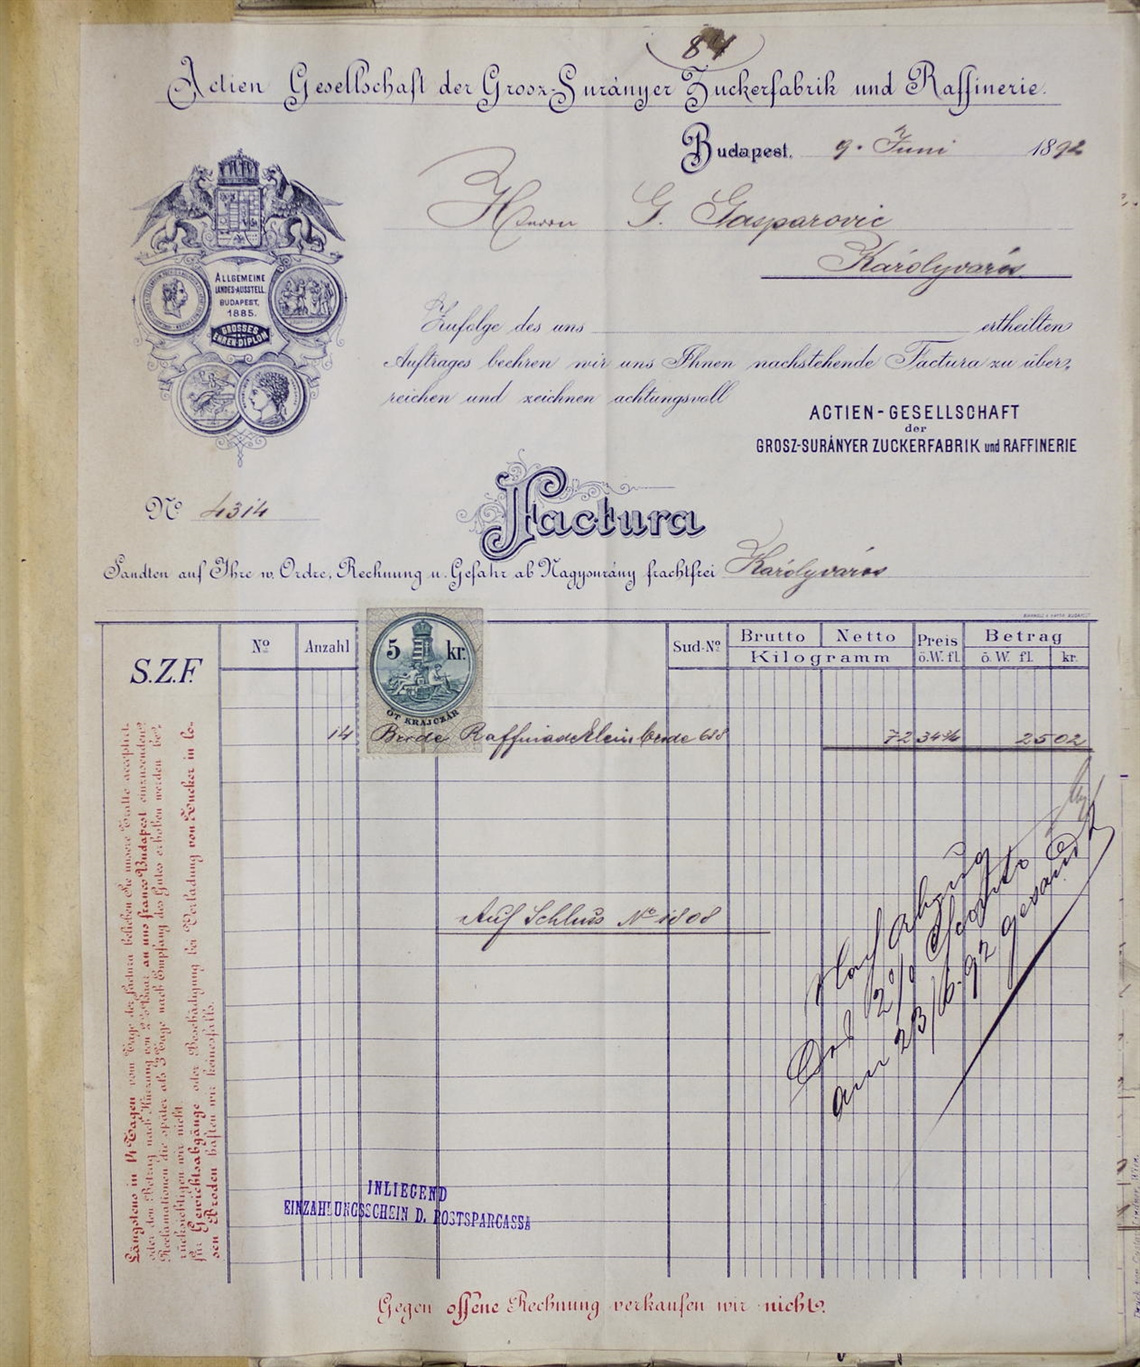 84
Actien Gesellschaft der Grosz-Surányer Zuckerfabrik und Raffinerie.
Budapest, 9. Juni 1892
Herrn G. Gasparovic
Károlyváros
ALLGEMEINE
LANDES-AUSSTELL.
BUDAPEST,
1885.
GROSSES
EHREN-DIPLOM
Zufolge des uns ertheilten
Auftrages beehren wir uns Ihnen nachstehende Factura zu über-
reichen und zeichnen achtungsvoll
ACTIEN-GESELLSCHAFT
der
GROSZ-SURÁNYER ZUCKERFABRIK und RAFFINERIE
No 4314
Factura
Sandten auf Ihre w. Ordre, Rechnung u. Gefahr ab Nagysurány frachtfrei Károlyváros
S.Z.F.
No Anzahl Sud-No Brutto Netto Preis Betrag
Kilogramm ö.W. fl. ö. W. fl. kr.
5 kr.
ÖT KRAJCZÁR
14 Brode Raffinade 688 72 34¾ 25 02
Auf Schluss No 1808
Nach Abzug
2% Sconto
am 23/6.92 gesandt
Längstens in 14 Tagen vom Tage der Factura belieben Sie unsere Tratte acceptirt
oder den Betrag nach Kürzung von 2% Baar an uns franco Budapest einzusenden.
Reclamationen die später als 3 Tage nach Empfang des Gutes erhoben werden be-
rücksichtigen wir nicht.
für Gewichtsabgänge oder Beschädigung bei Verladung von Zucker in lo-
sen Broden haften wir keinesfalls.
INLIEGEND
EINZAHLUNGSSCHEIN D. POSTSPARCASSA
Gegen offene Rechnung verkaufen wir nicht.